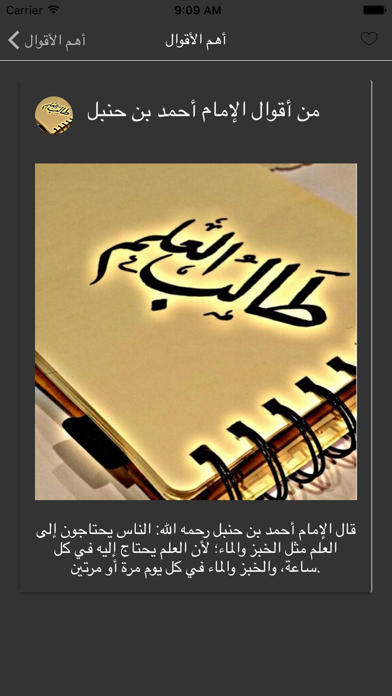 Carrier 9:09 AM
أهم الأقوال أهم الأقوال
من أقوال الإمام أحمد بن حنبل
طَالِبُ العِلم
قال الإمام أحمد بن حنبل رحمه الله: الناس يحتاجون إلى
العلم مثل الخبز والماء؛ لأن العلم يحتاج إليه في كل
ساعة، والخبز والماء في كل يوم مرة أو مرتين.